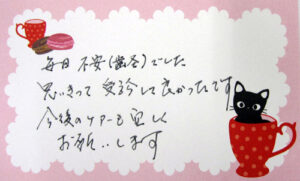 毎日 不安(歯冬)でした
思いきって 受診して良かったです
今後のケアーも宜しく
お願いします